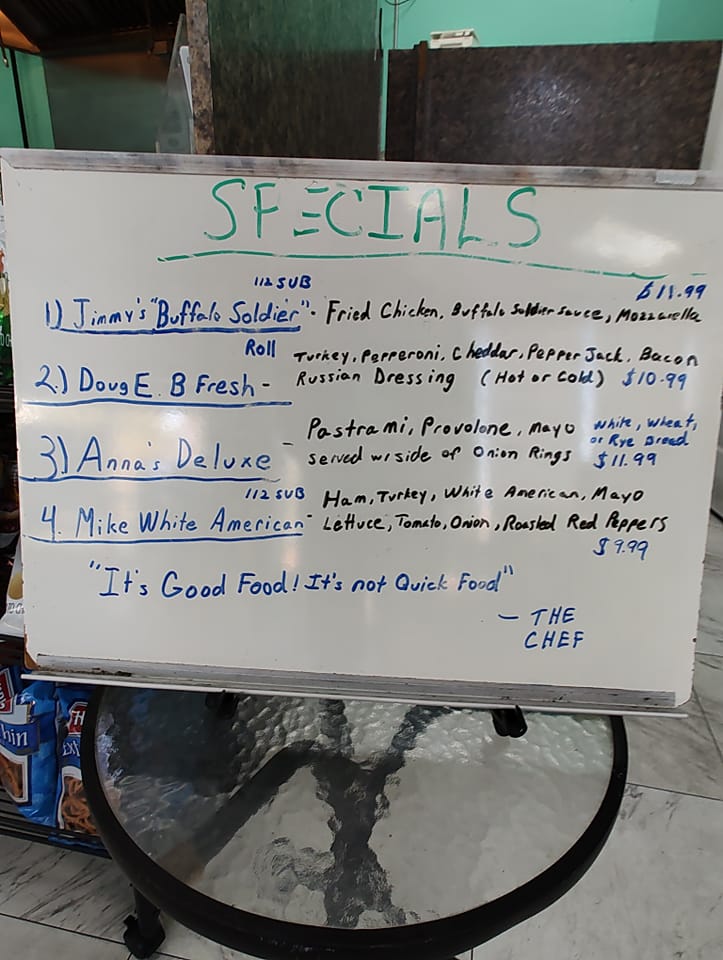 SPECIALS
1/2 SUB
$11.99
1) Jimmy's "Buffalo Soldier" - Fried Chicken, Buffalo Soldier sauce, Mozzarella
Roll
2.) Doug E. B Fresh - Turkey, Pepperoni, Cheddar, Pepper Jack, Bacon
Russian Dressing (Hot or Cold) $10.99
3) Anna's Deluxe - Pastrami, Provolone, Mayo White, Wheat,
or Rye Bread
served w/ side of Onion Rings $11.99
1/2 SUB
4. Mike White American - Ham, Turkey, White American, Mayo
Lettuce, Tomato, Onion, Roasted Red Peppers
$9.99
"It's Good Food! It's not Quick Food"
— THE
CHEF